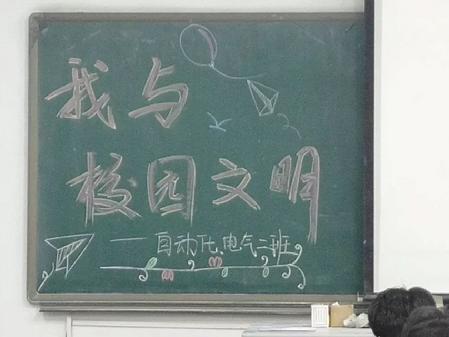 我与
校园文明
——自动化、电气二班